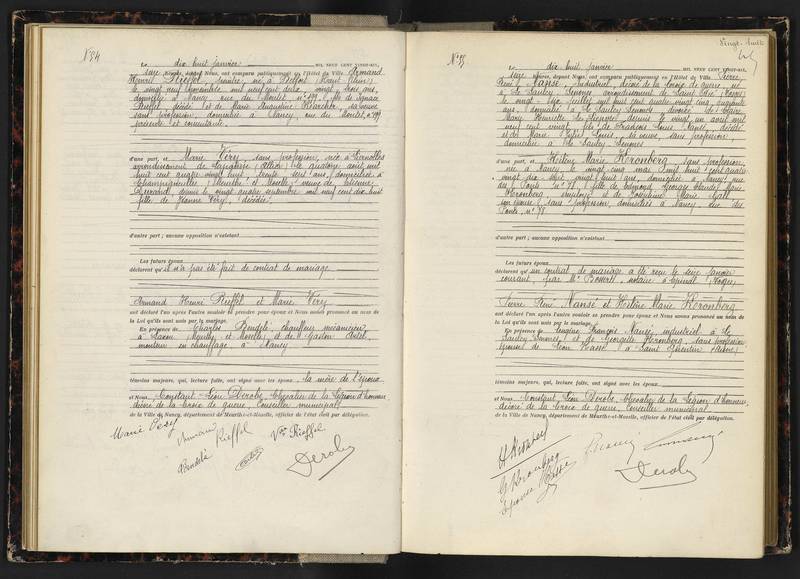 N° 54
Le dix huit janvier MIL NEUF CENT VINGT-SIX,
seize heures, devant Nous, ont comparu publiquement en l'Hôtel de Ville Armand
Henri Rieffel, peintre, né à Belfort (Haut Rhin)
le vingt neuf novembre mil neuf cent deux, vingt trois ans,
domicilié à Nancy rue du Montet n° 199, fils de Ignace
Rieffel, décédé et de Marie Augustine sa veuve
sans profession, domiciliée à Nancy, rue du Montet n° 199
présente et consentante
d'une part, et Marie Véry, sans profession, née à
arrondissement de (Allier) le quatorze août mil
huit cent quatre vingt huit, trente sept ans, domiciliée à
Champigneulles (Meurthe et Moselle) veuve de Etienne
depuis le vingt quatre septembre mil neuf cent dix huit
fille de Jeanne Véry, décédée
d'autre part ; aucune opposition n'existant
Les futurs époux
déclarent qu'il n'a pas été fait de contrat de mariage
Armand Henri Rieffel et Marie Véry
ont déclaré l'un après l'autre vouloir se prendre pour époux et Nous avons prononcé au nom de
la Loi qu'ils sont unis par le mariage.
En présence de Charles chauffeur mécanicien
à (Meurthe et Moselle) et de Gaston
monteur en chauffage à Nancy
témoins majeurs, qui, lecture faite, ont signé avec les époux, la mère de l'époux
et Nous, Constant Léon Derobe, Chevalier de la Légion d'honneur
décoré de la Croix de guerre, Conseiller municipal
de la Ville de Nancy, département de Meurthe-et-Moselle, officier de l'état civil par délégation.
Marie Véry
Armand Rieffel
Vve Rieffel
Derobe
Vingt-huit
N° 55
Le dix huit janvier MIL NEUF CENT VINGT-SIX,
seize heures, devant Nous, ont comparu publiquement en l'Hôtel de Ville Pierre
René Nansé, industriel, décoré de la Croix de guerre, né
à Le Saulcy Senones arrondissement de Saint Dié (Vosges)
le vingt juillet mil huit cent quatre vingt cinq, quarante
ans, domicilié à Le Saulcy Senones divorcé de Claire
Mary Henriette depuis le vingt un août mil
neuf cent vingt fils de François Louis Nansé, décédé
et de Marie Louis, sa veuve, sans profession,
domiciliée à Le Saulcy Senones
d'une part, et Hélène Marie Kronberg, sans profession,
née à Nancy le vingt cinq mai mil huit cent quatre
vingt dix sept vingt huit ans, domiciliée à Nancy, rue
du n° 78, fille de Edmond George Claude Marie
Kronberg, employé et de Marie
son épouse, sans profession, domiciliés à Nancy rue du
n° 78
d'autre part ; aucune opposition n'existant
Les futurs époux
déclarent qu'un contrat de mariage a été reçu le seize janvier
courant, par Me notaire à Epinal (Vosges)
Pierre René Nansé et Hélène Marie Kronberg
ont déclaré l'un après l'autre vouloir se prendre pour époux et Nous avons prononcé au nom de
la Loi qu'ils sont unis par le mariage.
En présence de Eugène François Nansé, industriel à Le
Saulcy Senones et de Georgette Kronberg, sans profession
épouse de Léon Hasse à Saint Quentin (Aisne)
témoins majeurs, qui, lecture faite, ont signé avec les époux
et Nous, Constant Léon Derobe, Chevalier de la Légion d'honneur,
décoré de la Croix de guerre, Conseiller municipal
de la Ville de Nancy, département de Meurthe-et-Moselle, officier de l'état civil par délégation.
H Kronberg
G Kronberg
épouse Hasse
Derobe